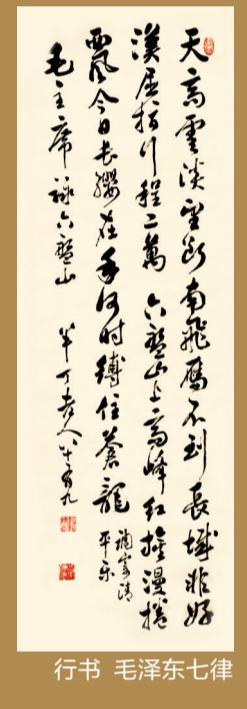 天高雲淡望断南飛雁不到長城非好
漢屈指行程二萬 六盤山上高峰紅旗漫捲
西風今日長纓在手何时縛住蒼龍
調寄清
平乐
毛主席詠六盤山 半丁老人
行书 毛泽东七律